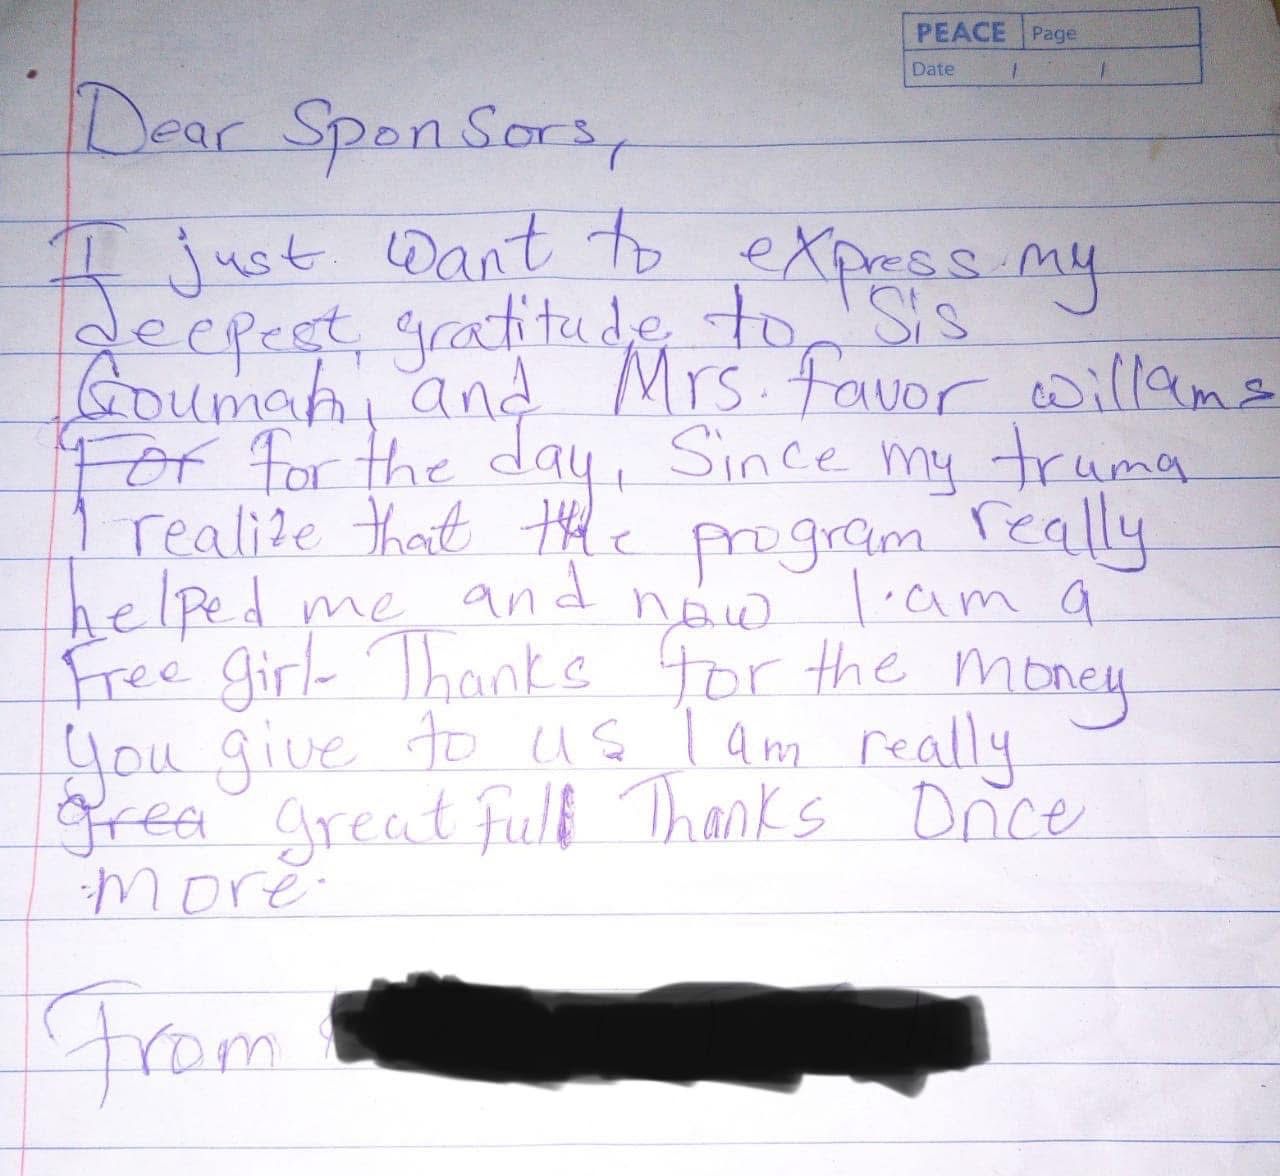 PEACE Page
Date / /
Dear Sponsors,
I just want to express my
deepest gratitude to Sis
Goumah, and Mrs. Favor willams
For for the day, Since my truma
I realize that the program really
helped me and now I am a
Free girl. Thanks for the money
you give to us I am really
grea greatfull Thanks Once
more.
From